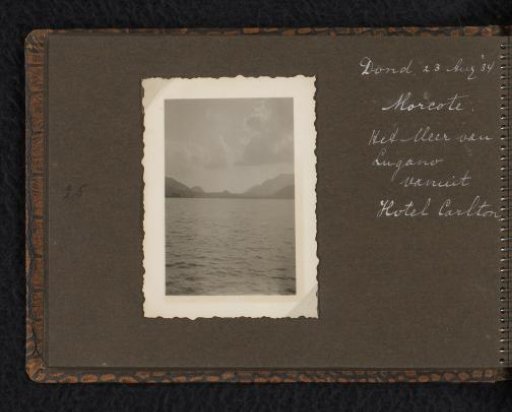 Dond 23 Aug '34
Morcote.
Het Meer van
Lugano
vanuit
Hotel Carlton
25